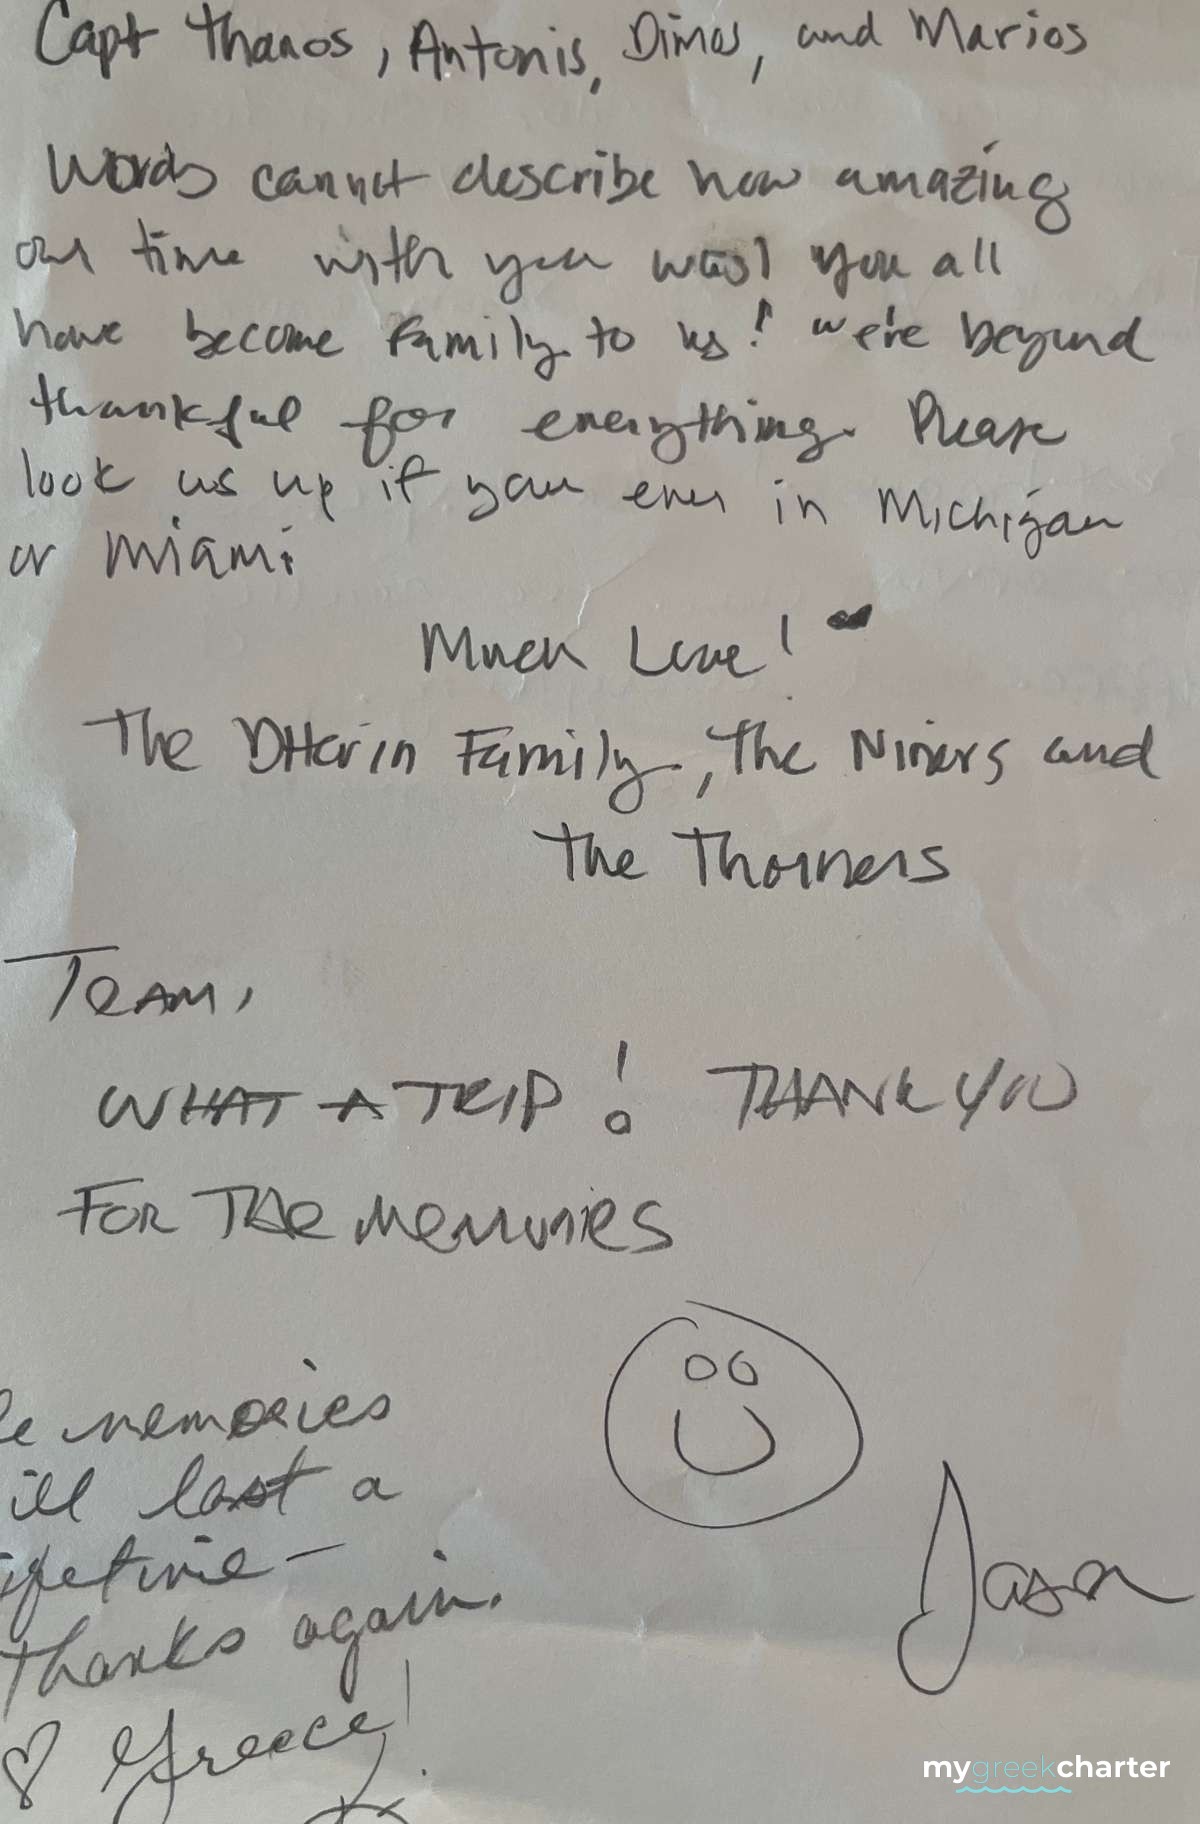 Capt Thanos, Antonis, Dimos, and Marios
Words cannot describe how amazing
our time with you was! You all
have become family to us! We're beyond
thankful for everything. Please
look us up if your ever in Michigan
or Miami
Much Love!
The Family, The Niners and
The Thorners
TEAM,
WHAT A TRIP! THANK YOU
FOR THE MEMORIES
memories
last a
thanks again.
♡ Greece!
Jason
mygreekcharter